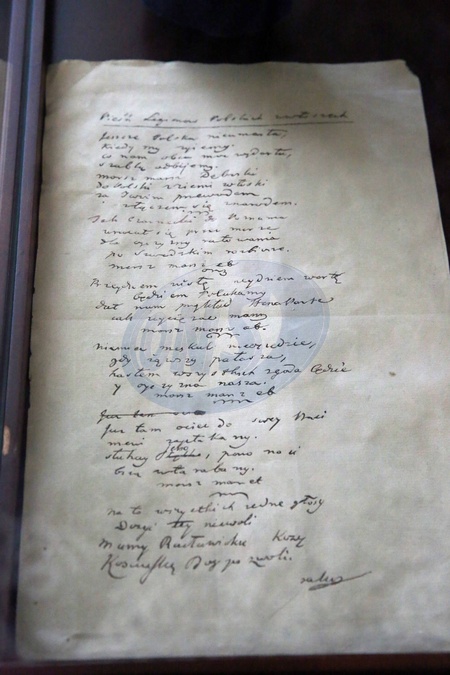 Pieśń Legionów Polskich we Włoszech
Jeszcze Polska nie umarła,
kiedy my żyjemy.
co nam obca moc wydarła,
szablą odbijemy.
marsz marsz Dąbrowski
do Polski z ziemi włoski
za Twoim przewodem
złączem się z narodem.
Jak Czarnecki do Poznania
wracał się przez morze
dla ojczyzny ratowania
po szwedzkim rozbiorze.
marsz marsz etc
Przejdziem Wisłę przejdziem Wartę
będziem Polakami
dał nam przykład Bonaparte
jak zwyciężać mamy
marsz marsz etc.
Niemiec, Moskal nie osiędzie,
gdy jąwszy pałasza,
hasłem wszystkich zgoda będzie
y ojczyzna nasza.
marsz marsz etc
Już tam ociec do swej Basi
mówi zapłakany.
słuchaj jeno, pono nasi
biją w tarabany.
marsz marsz etc
na to wszystkich jedne głosy
Dosyć tej niewoli
Mamy Racławickie Kosy
Kościuszkę Bóg pozwoli.